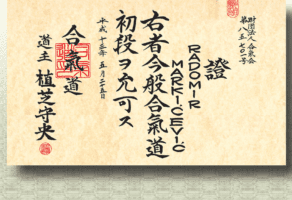 財団法人 合気会
第八五七〇一号
證
RADOMIR
MARKIĆEVIĆ
右者今般合氣道
初段ヲ允可ス
平成十三年 五月二十五日
合氣道
道主 植芝守央